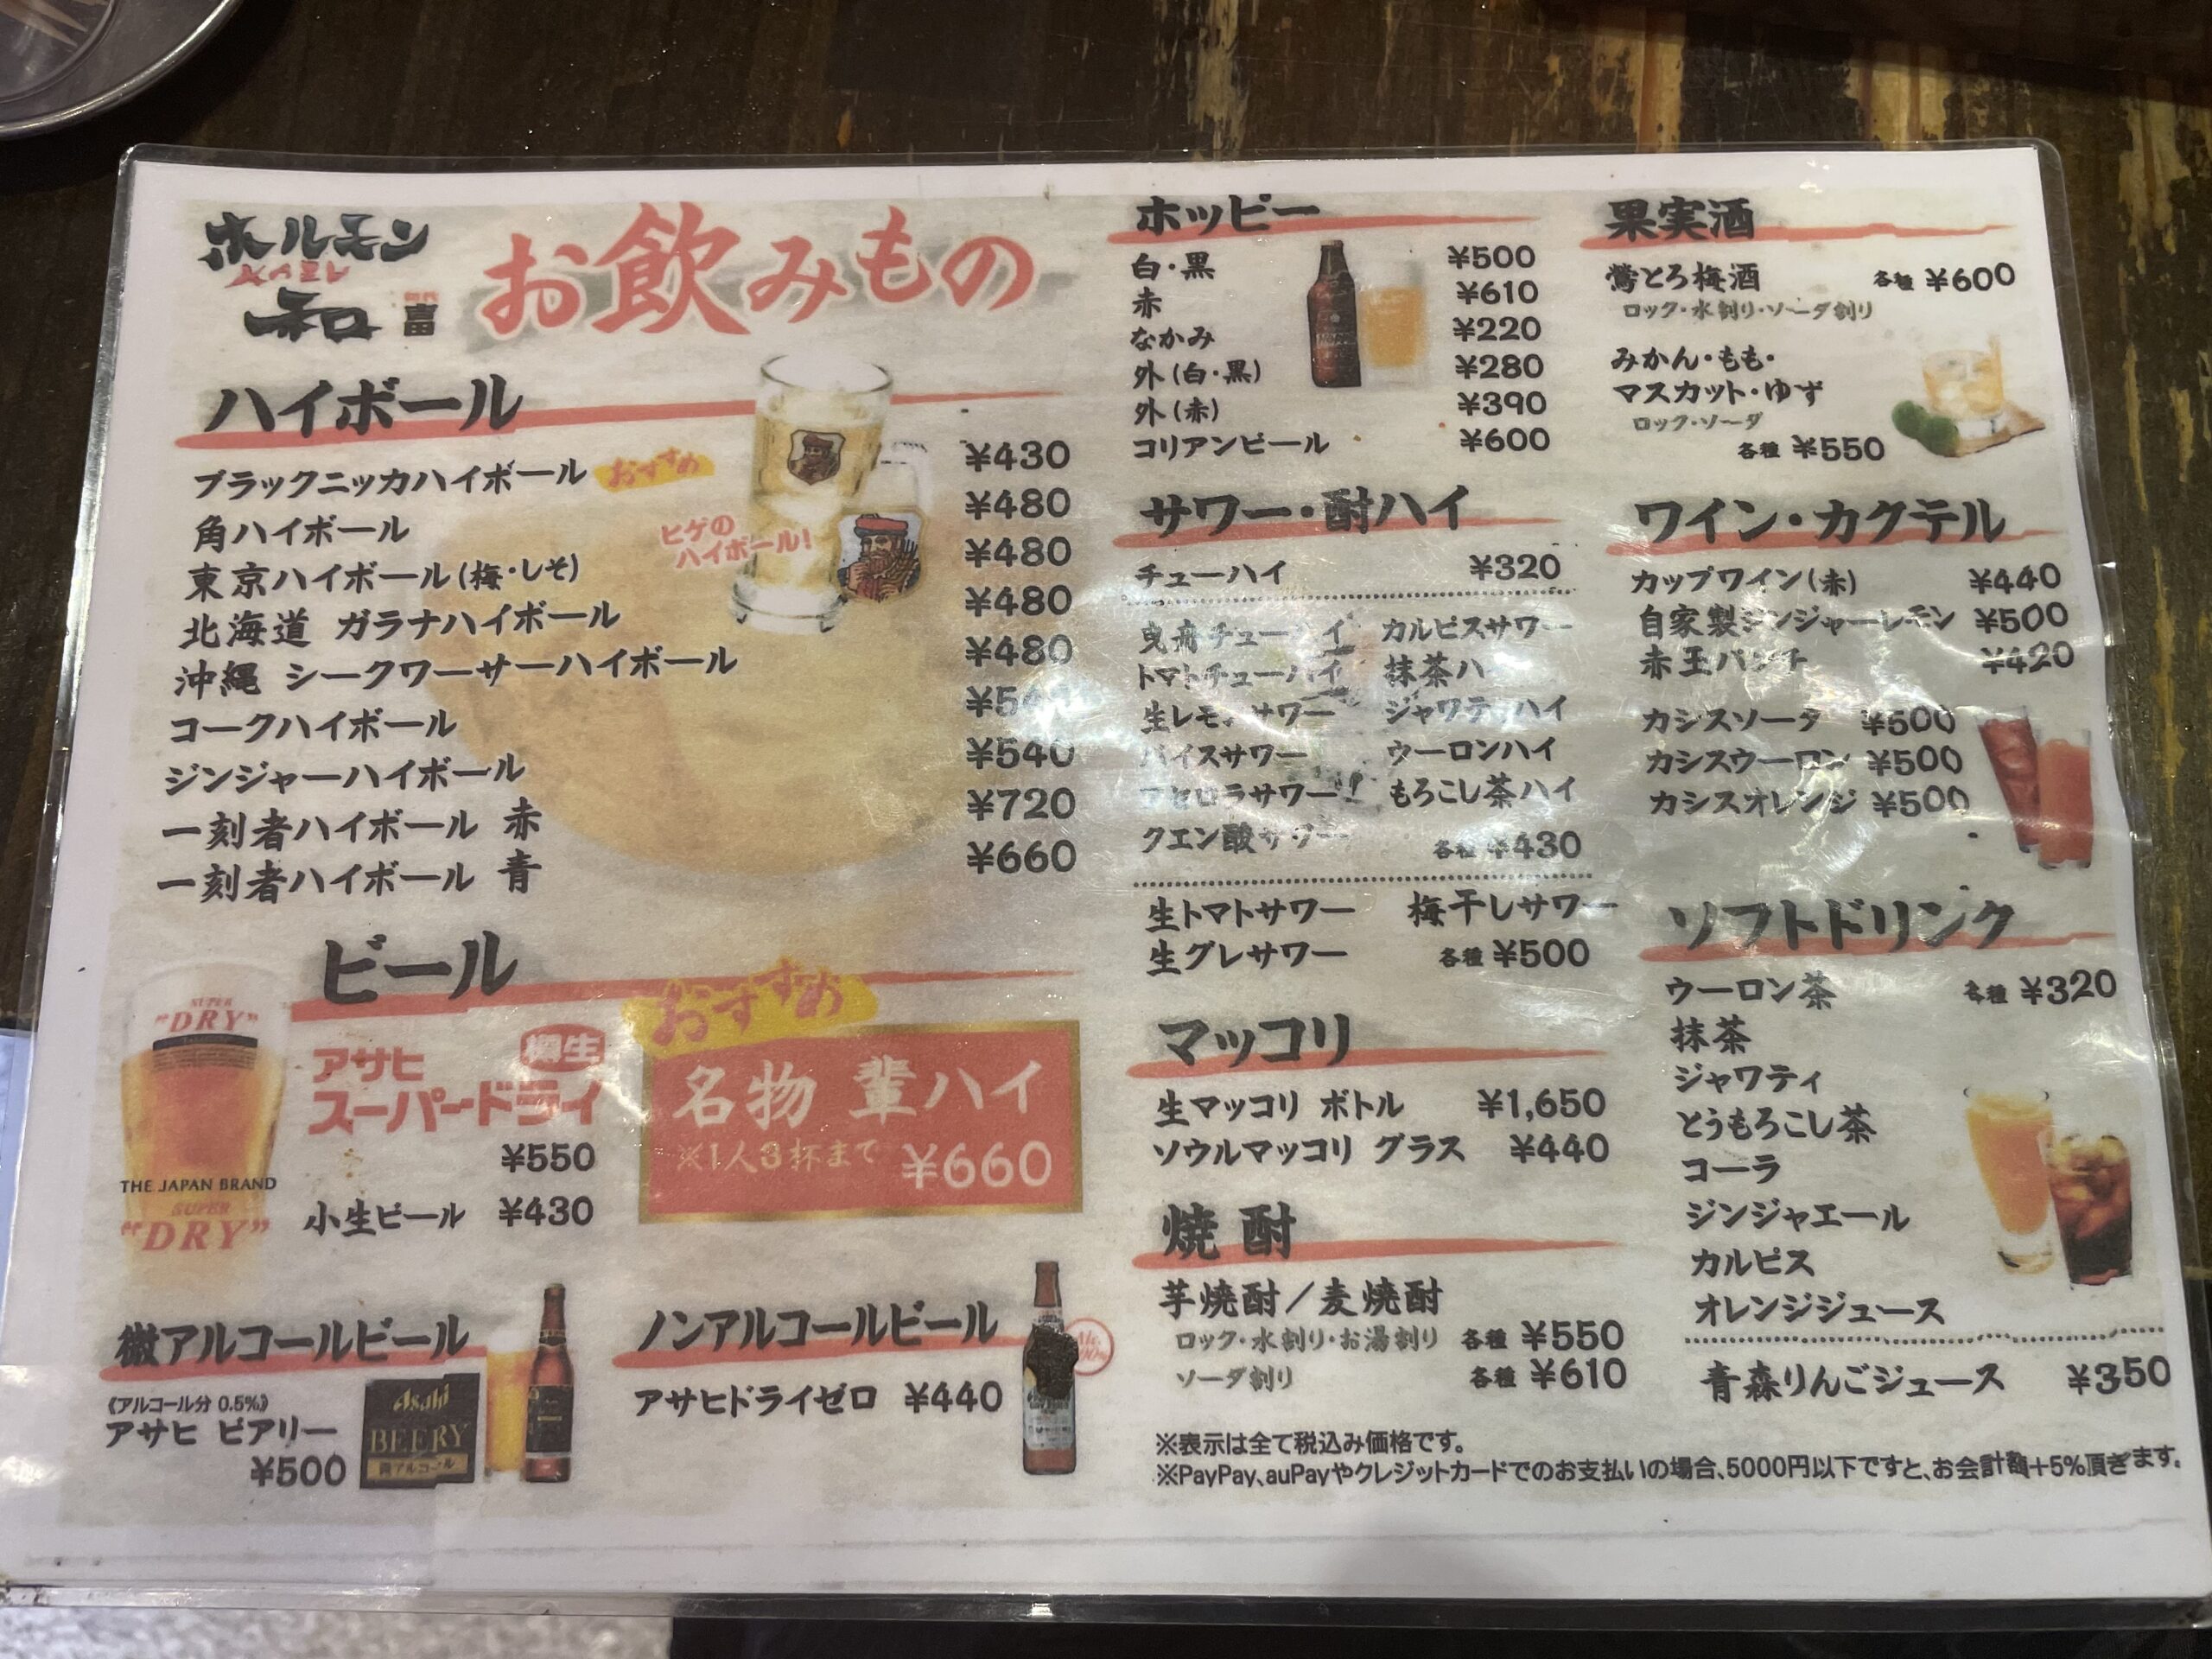 ホルモン
和
お飲みもの
ハイボール
ブラックニッカハイボール おすすめ ¥430
角ハイボール ¥480
東京ハイボール(梅・しそ) ¥480
北海道 ガラナハイボール ¥480
沖縄 シークワーサーハイボール ¥480
コークハイボール
ジンジャーハイボール ¥540
一刻者ハイボール 赤 ¥720
一刻者ハイボール 青 ¥660
ヒゲの
ハイボール!
ビール
SUPER
"DRY"
THE JAPAN BRAND
SUPER
"DRY"
アサヒ
スーパードライ
¥550
小生ビール ¥430
おすすめ
名物 輩ハイ
※1人3杯まで ¥660
微アルコールビール
《アルコール分 0.5%》
アサヒ ビアリー
¥500
Asahi
BEERY
微アルコール
ノンアルコールビール
アサヒドライゼロ ¥440
ホッピー
白・黒 ¥500
赤 ¥610
なかみ ¥220
外(白・黒) ¥280
外(赤) ¥390
コリアンビール ¥600
サワー・酎ハイ
チューハイ ¥320
曳舟チューハイ カルピスサワー
トマトチューハイ 抹茶ハイ
生レモンサワー ジャワティハイ
バイスサワー ウーロンハイ
アセロラサワー もろこし茶ハイ
クエン酸サワー 各種 ¥430
生トマトサワー 梅干しサワー
生グレサワー 各種 ¥500
マッコリ
生マッコリ ボトル ¥1,650
ソウルマッコリ グラス ¥440
焼酎
芋焼酎/麦焼酎
ロック・水割り・お湯割り 各種 ¥550
ソーダ割り 各種 ¥610
果実酒
鶯とろ梅酒 各種 ¥600
ロック・水割り・ソーダ割り
みかん・もも・
マスカット・ゆず
ロック・ソーダ
各種 ¥550
ワイン・カクテル
カップワイン(赤) ¥440
自家製ジンジャーレモン ¥500
赤玉パンチ ¥420
カシスソーダ ¥500
カシスウーロン ¥500
カシスオレンジ ¥500
ソフトドリンク
ウーロン茶 各種 ¥320
抹茶
ジャワティ
とうもろこし茶
コーラ
ジンジャエール
カルピス
オレンジジュース
青森りんごジュース ¥350
※表示は全て税込み価格です。
※PayPay、auPayやクレジットカードでのお支払いの場合、5000円以下ですと、お会計額+5%頂きます。